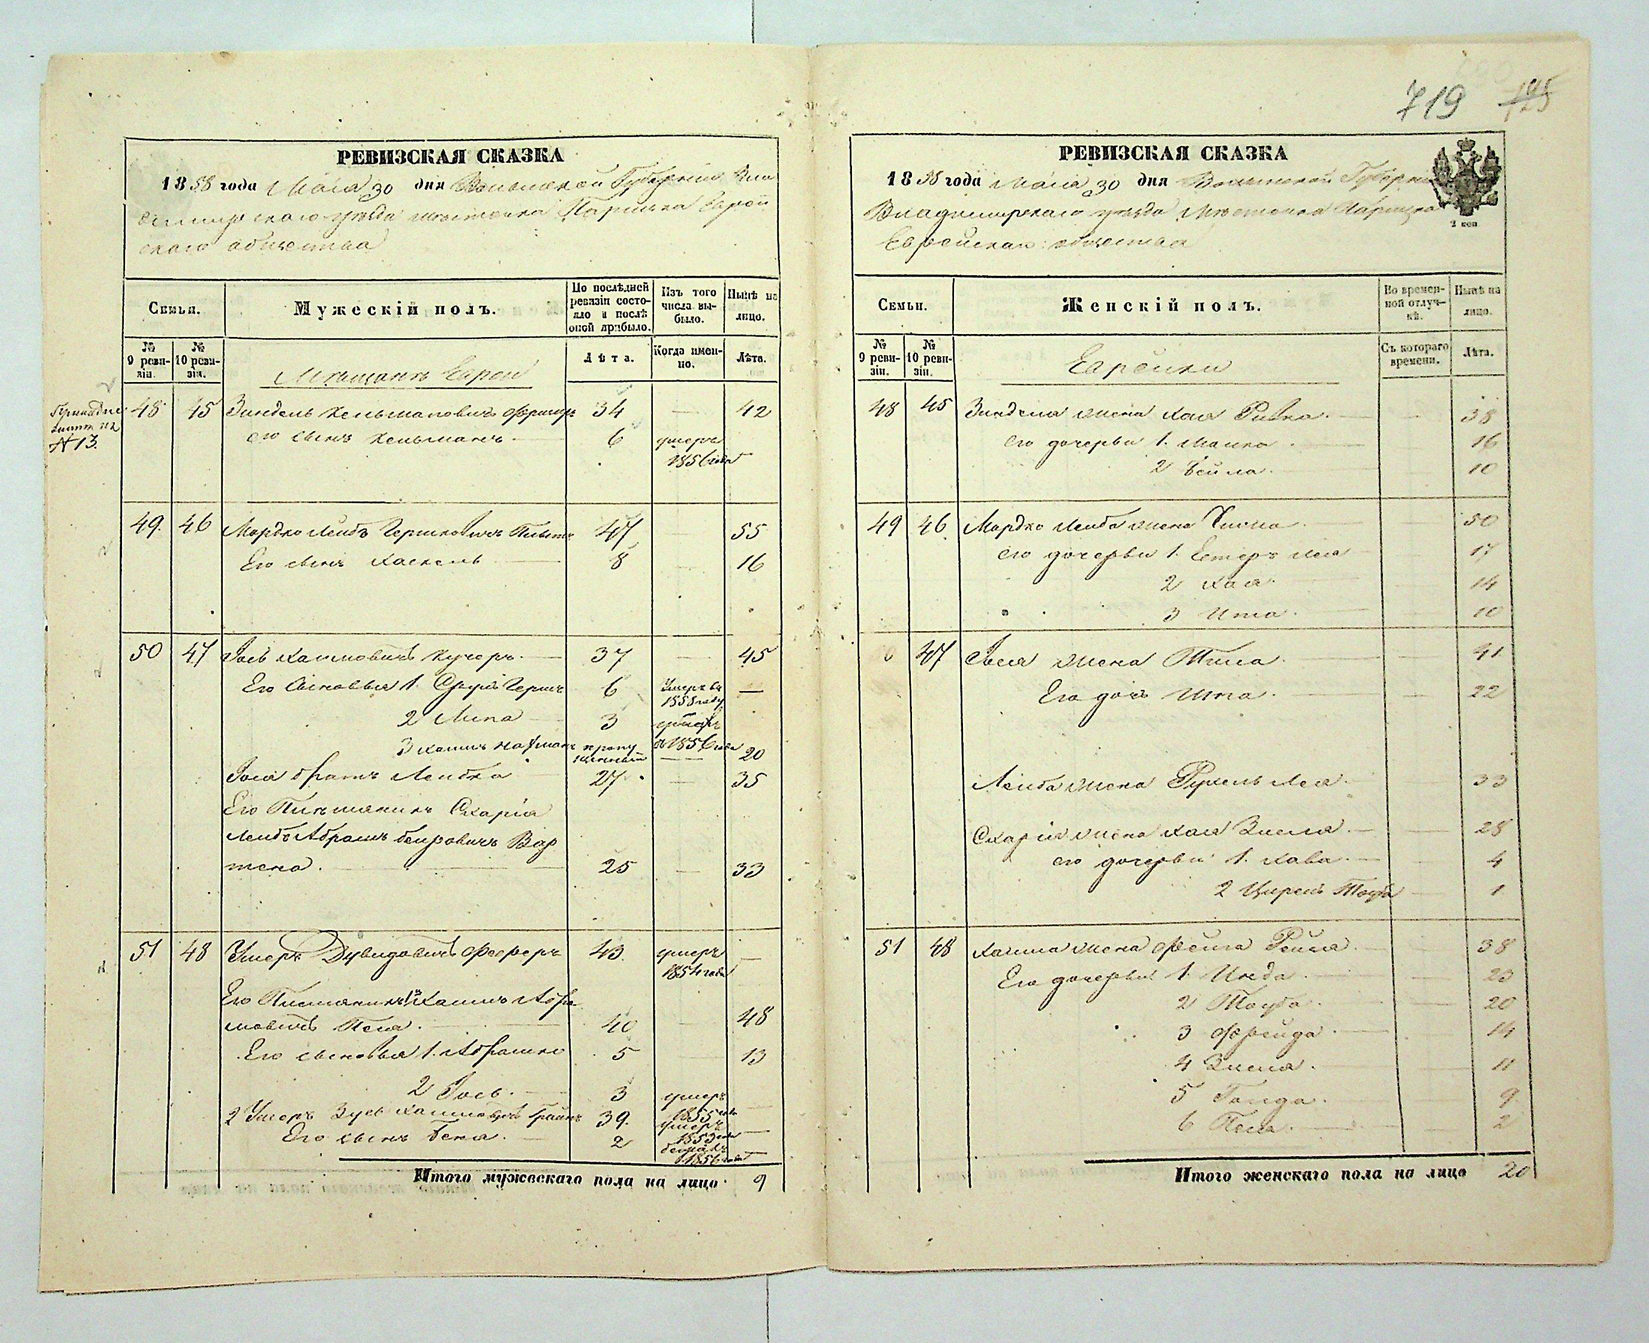 719 195
РЕВИЗСКАЯ СКАЗКА
1858 года Мая 30 дня Волынской Губернии Вла
димирского уезда местечка Еврей
ского общества
Семьи.
Мужескій полъ.
По послѣдней ревизіи состояло и послѣ оной прибыло.
Изъ того числа выбыло.
Нынѣ на лицо.
№ 9 ревизіи.
№ 10 ревизіи.
Лѣта.
Когда именно.
Лѣта.
Мѣщане Евреи
№ 13.
48 45 Зиндель Хельманович 34 — 42
его сынъ Хельманъ 6 умеръ
1856 года
49. 46 Мордко Лейбъ Гершковичъ 47 — 55
Его сынъ Хаскель 8 — 16
50 47 Іось Хаимовичъ Кучеръ 37 — 45
Его сыновья 1. Сруль Гершъ 6 Умеръ въ —
1855 году
2 Липа 3
3 Хаимъ Нахманъ пропущенный — 20
Іося братъ Лейбка 27 — 35
Его Племянникъ Схарія
Лейбъ Абрамъ Беировичъ Вар
тена. 25 — 33
51 48 Ушеръ Дувидовичъ Феферъ 43. умеръ —
1854 года
Его Племянникъ Хаимъ Абра
мовичъ 40 — 48
Его сыновья 1. Абрашко 5 — 13
2 Іось. 3 умеръ —
1855
2 Ушеръ Зусь Хаимовичъ 39. умеръ —
1853
Его сынъ Бена. 2 —
1856
Итого мужескаго пола на лицо 9
РЕВИЗСКАЯ СКАЗКА
1858 года Мая 30 дня Волынской Губернии
Владимирского уезда Местечка
Еврейскаго общества
2 коп
Семьи.
Женскій полъ.
Во временной отлучкѣ.
Нынѣ на лицо.
№ 9 ревизіи.
№ 10 ревизіи.
Съ котораго времени.
Лѣта.
Еврейки
48 45 Зинделя жена Хая Ривка. 38
его дочерьи 1. Малка 16
2 Бейла. 10
49 46. Мордко Лейба жена 50
его дочерьи 1. Естеръ Лея 17
2 Хая 14
3 Ита. 10
47 Іося жена 41
Его дочь Ита. 22
Лейба жена Рухель Лея 33
Схарія жена Хая Зисля. 28
его дочерьи 1. Хава. 4
2 Цирель Тауба 1
51 48 Хаима жена Фейга Рейзя 38
Его дочерьи 1. Инда. 23
2 Тауба. 20
3 Фрейда. 14
4 Зисля. 11
5 9
6 Песя. 2
Итого женскаго пола на лицо 20